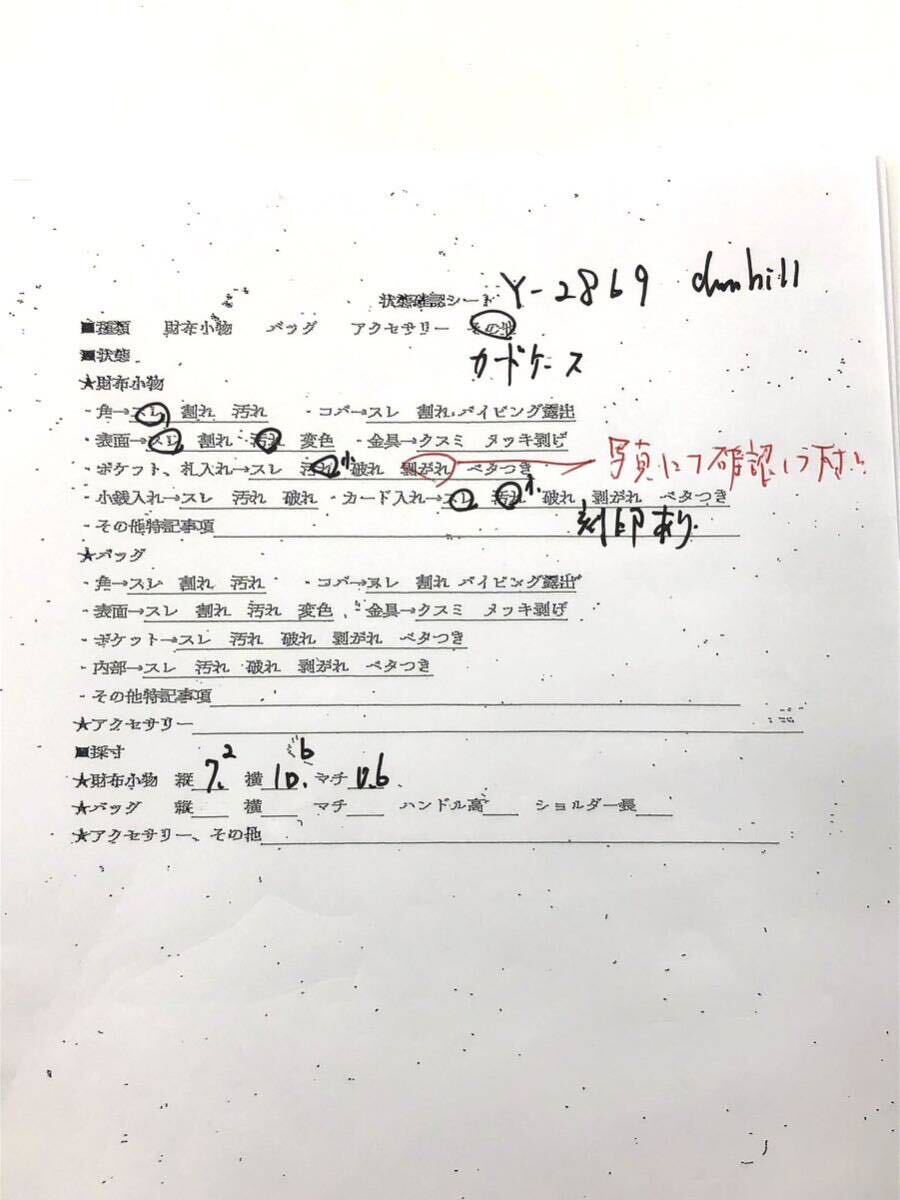 状態確認シート Y-2869 dunhill
■種類 財布小物 バッグ アクセサリー その他
■状態 カードケース
★財布小物
・角→スレ 割れ 汚れ ・コバ→スレ 割れ パイピング露出
・表面→スレ 割れ 汚れ 変色 ・金具→クスミ メッキ剥げ
・ポケット、札入れ→スレ 汚れ小 破れ 剥がれ ベタつき 写真にて確認し下さい
・小銭入れ→スレ 汚れ 破れ ・カード入れ→スレ 汚れ小 破れ 剥がれ ベタつき
・その他特記事項 刻印あり
★バッグ
・角→スレ 割れ 汚れ ・コバ→スレ 割れ パイピング露出
・表面→スレ 割れ 汚れ 変色 ・金具→クスミ メッキ剥げ
・ポケット→スレ 汚れ 破れ 剥がれ ベタつき
・内部→スレ 汚れ 破れ 剥がれ ベタつき
・その他特記事項
★アクセサリー
■採寸
★財布小物 縦7.2 横10.6 マチ0.6
★バッグ 縦 横 マチ ハンドル高 ショルダー長
★アクセサリー、その他